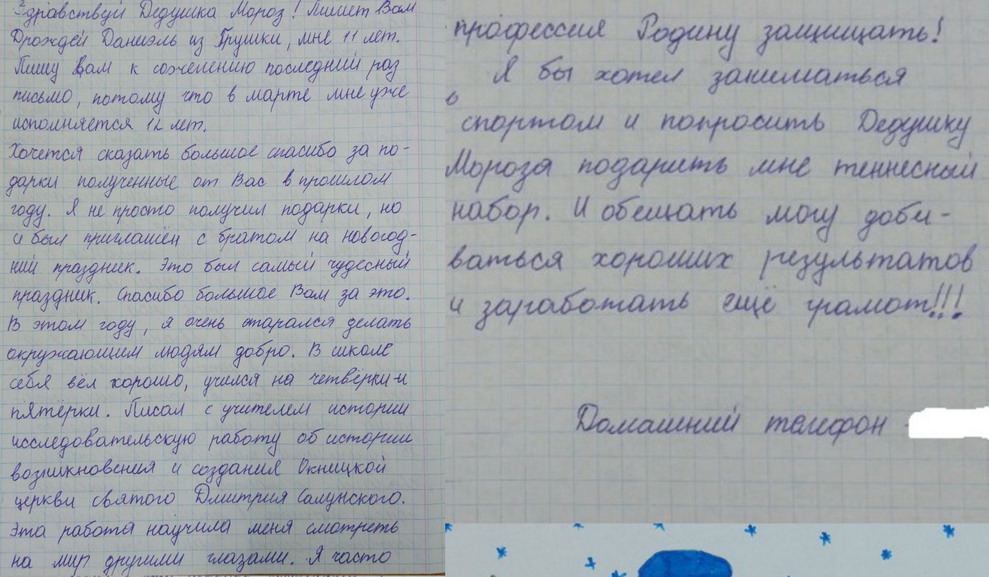 Здравствуй Дедушка Мороз! Пишет Вам
Дрождей Даниэль из Грушки, мне 11 лет.
Пишу Вам к сожелению последний раз
письмо, потому что в марте мне уже
исполняется 12 лет.
Хочется сказать большое спасибо за по-
дарки полученные от Вас в прошлом
году. Я не просто получил подарки, но
и был приглашён с братом на новогод-
ний праздник. Это был самый чудесный
праздник. Спасибо большое Вам за это.
В этом году, я очень старался делать
окружающим людям добро. В школе
себя вёл хорошо, учился на четвёрки и
пятёрки. Писал с учителем истории
исследовательскую работу об истории
возникновения и создания Окницкой
церкви святого Дмитрия Салунского.
Эта работа научила меня смотреть
на мир другими глазами. Я часто
профессия Родину защищать!
Я бы хотел заниматься
спортом и попросить Дедушку
Мороза подарить мне теннесный
набор. И обещать могу доби-
ваться хороших результатов
и заработать ещё грамот!!!
Домашний телефон -